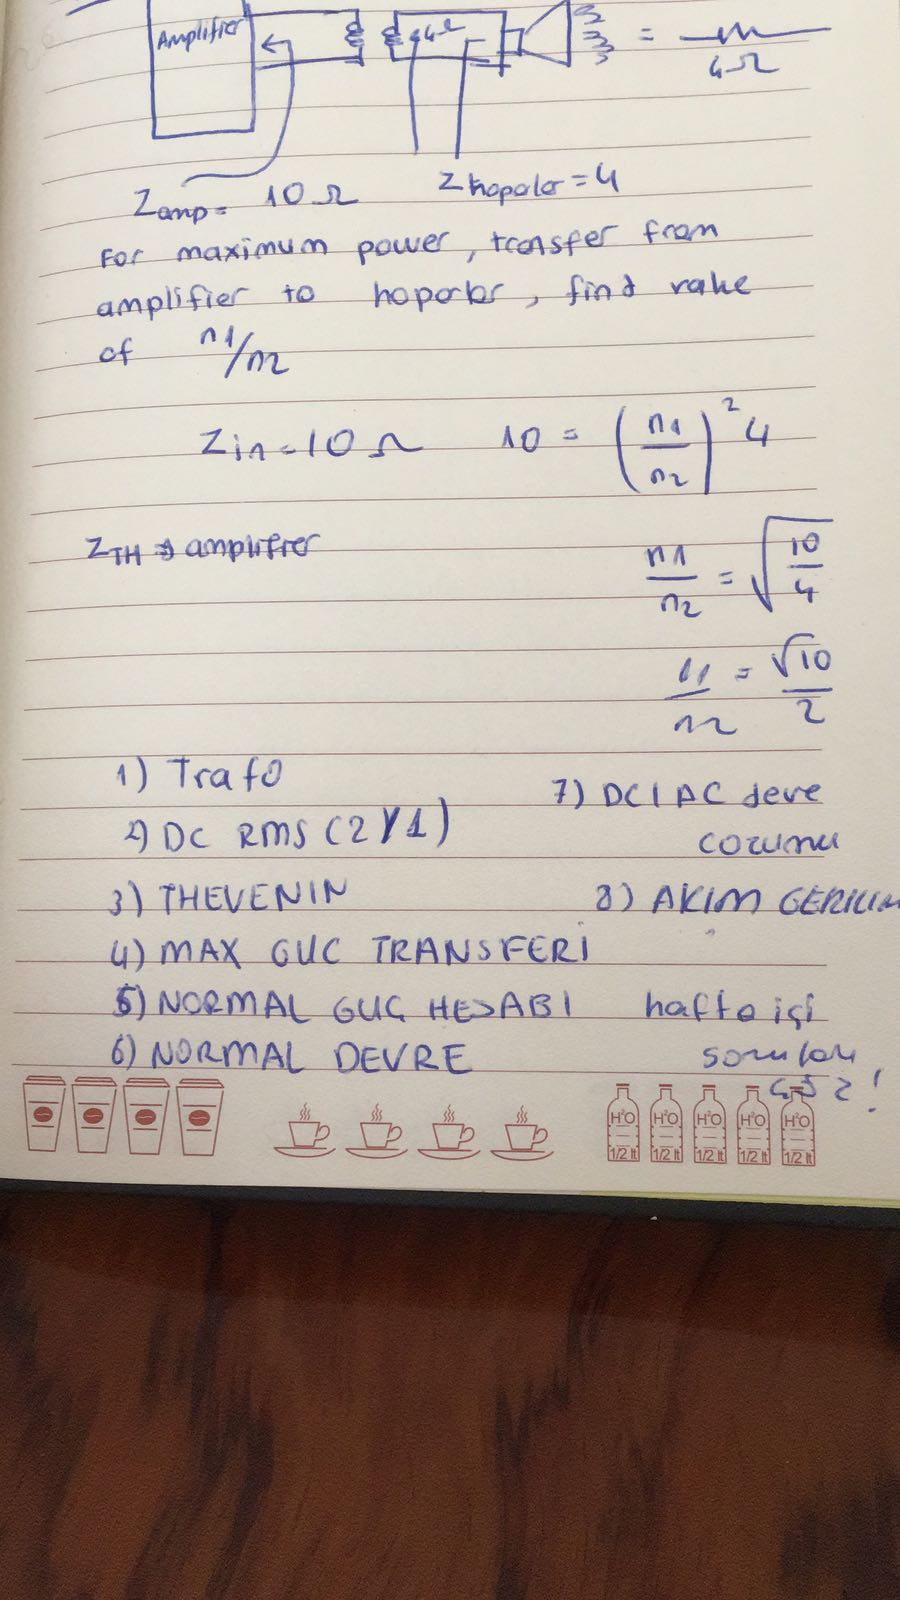 Amplifier
4Ω
=
4Ω
Zamp= 10 Ω
Zhopalor = 4
For maximum power, transfer from
amplifier to hoporlor, find value
of n1/n2
Zin = 10 Ω
10 = (n1/n2)² 4
ZTH → amplifier
n1/n2 = √10/4
n1/n2 = √10/2
1) Trafo
2) DC RMS (2Y1)
3) THEVENIN
4) MAX GUC TRANSFERI
5) NORMAL GUC HESABI
6) NORMAL DEVRE
7) DC1AC deve
cozumu
8) AKIM GERILIM
hafta içi
soruları
H²O H²O H²O H²O H²O
1/2 lt 1/2 lt 1/2 lt 1/2 lt 1/2 lt